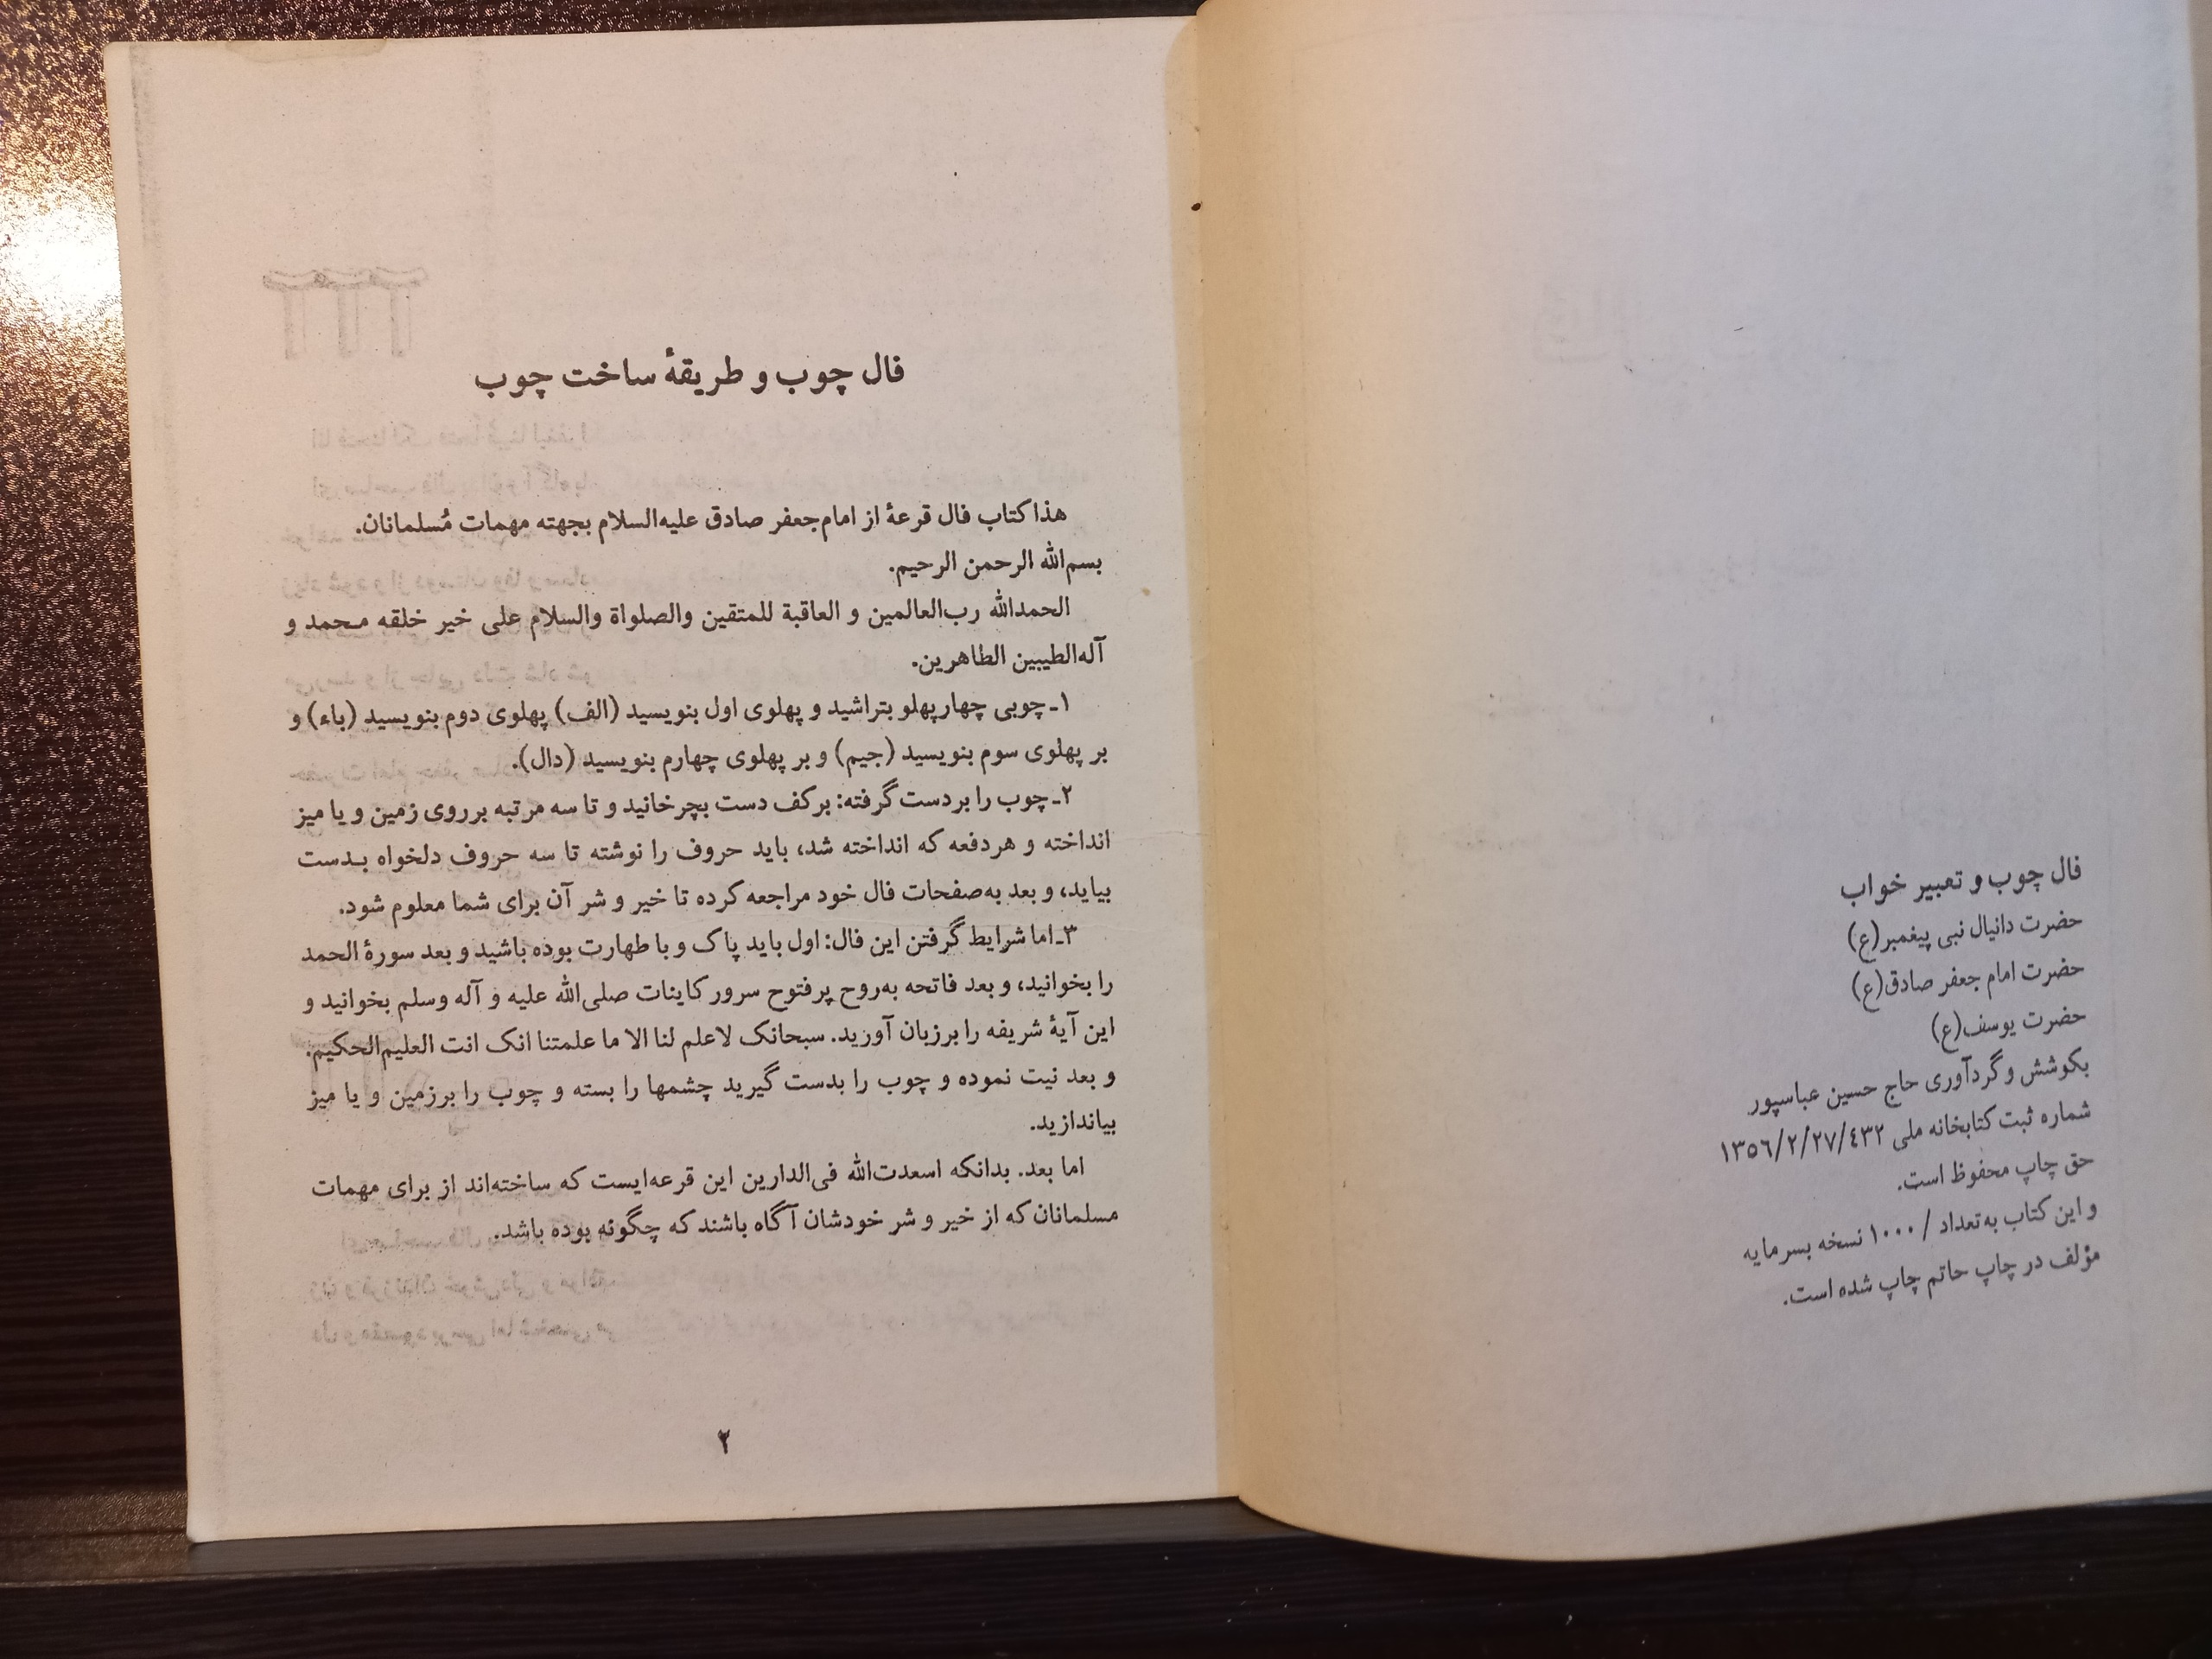 فال چوب و تعبیر خواب
حضرت دانیال نبی پیغمبر(ع)
حضرت امام جعفر صادق(ع)
حضرت یوسف(ع)
بکوشش و گردآوری حاج حسین عباسپور
شماره ثبت کتابخانه ملی ۱۳۵۶/۲/۲۷/۴۳۲
حق چاپ محفوظ است.
و این کتاب به‌تعداد / ۱۰۰۰ نسخه بسرمایه
مؤلف در چاپ حاتم چاپ شده است.
فال چوب و طریقهٔ ساخت چوب
هذا کتاب فال قرعهٔ از امام‌جعفر صادق علیه‌السلام بجهته مهمات مُسلمانان.
بسم‌الله الرحمن الرحیم.
الحمدالله رب‌العالمین و العاقبة للمتقین والصلواة والسلام علی خیر خلقه محمد و
آله‌الطیبین الطاهرین.
۱ـ چوبی چهارپهلو بتراشید و پهلوی اول بنویسید (الف) پهلوی دوم بنویسید (باء) و
بر پهلوی سوم بنویسید (جیم) و بر پهلوی چهارم بنویسید (دال).
۲ـ چوب را بردست گرفته: برکف دست بچرخانید و تا سه مرتبه برروی زمین و یا میز
انداخته و هردفعه که انداخته شد، باید حروف را نوشته تا سه حروف دلخواه بدست
بیاید، و بعد به‌صفحات فال خود مراجعه کرده تا خیر و شر آن برای شما معلوم شود.
۳ـ اما شرایط گرفتن این فال: اول باید پاک و با طهارت بوده باشید و بعد سورهٔ الحمد
را بخوانید، و بعد فاتحه به‌روح پرفتوح سرور کاینات صلی‌الله علیه و آله وسلم بخوانید و
این آیهٔ شریفه را برزبان آورید. سبحانک لاعلم لنا الا ما علمتنا انک انت العلیم‌الحکیم.
و بعد نیت نموده و چوب را بدست گیرید چشمها را بسته و چوب را برزمین و یا میز
بیاندازید.
اما بعد. بدانکه اسعدت‌الله فی‌الدارین این قرعه‌ایست که ساخته‌اند از برای مهمات
مسلمانان که از خیر و شر خودشان آگاه باشند که چگونه بوده باشد.
۲